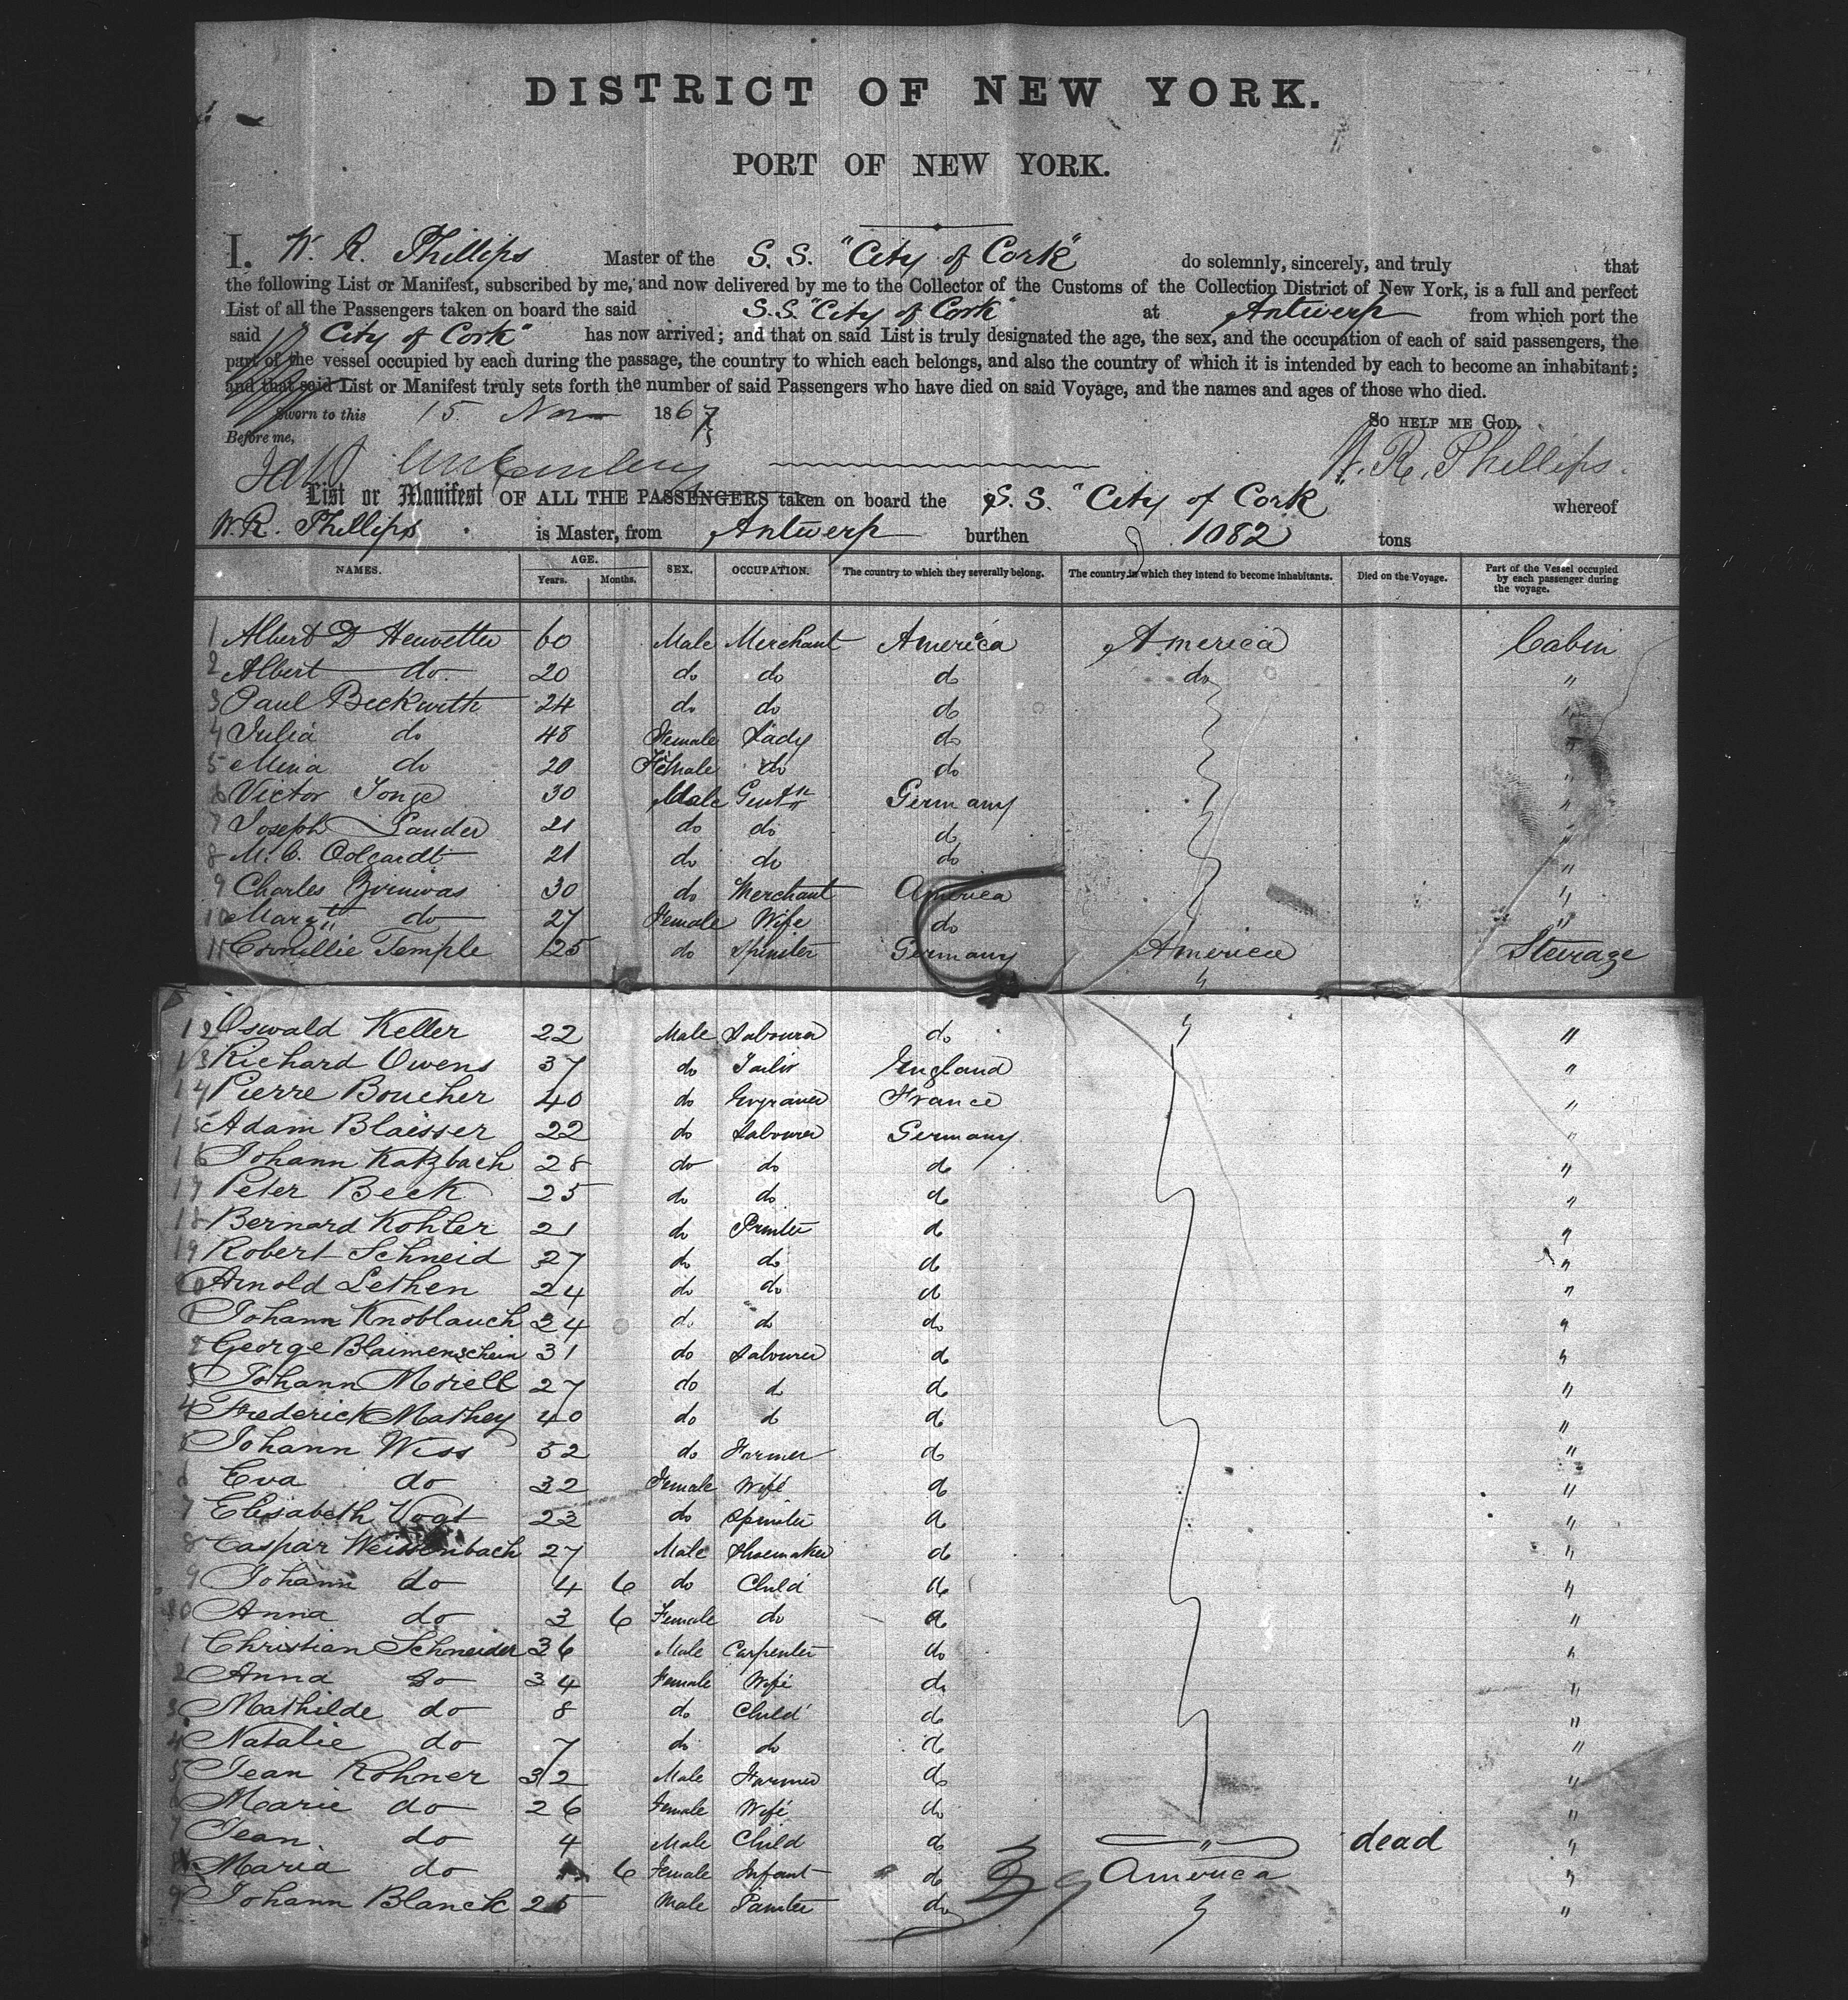 DISTRICT OF NEW YORK.
PORT OF NEW YORK.
I, W. R. Phillips Master of the S. S. "City of Cork" do solemnly, sincerely, and truly that
the following List or Manifest, subscribed by me, and now delivered by me to the Collector of the Customs of the Collection District of New York, is a full and perfect
List of all the Passengers taken on board the said S.S. "City of Cork" at Antwerp from which port the
said "City of Cork" has now arrived; and that on said List is truly designated the age, the sex, and the occupation of each of said passengers, the
part of the vessel occupied by each during the passage, the country to which each belongs, and also the country of which it is intended by each to become an inhabitant;
and that said List or Manifest truly sets forth the number of said Passengers who have died on said Voyage, and the names and ages of those who died.
Sworn to this 15 Nov 1867 So HELP ME GOD,
Before me, W. R. Phillips.
List or Manifest OF ALL THE PASSENGERS taken on board the S. S. "City of Cork whereof
W. R. Phillips is Master, from Antwerp burthen 1082 tons
NAMES. AGE. Years. Months. SEX. OCCUPATION. The country to which they severally belong. The country in which they intend to become inhabitants. Died on the Voyage. Part of the Vessel occupied by each passenger during the voyage.
1 Albert D 60 Male Merchant America America Cabin
2 Albert do 20 do do do do "
3 Paul Beckwith 24 do do do "
4 Julia do 48 Female Lady do "
5 Mina do 20 Female do do "
6 Victor 30 Male Germany "
7 Joseph 21 do do do "
8 M. C. 21 do do do "
9 Charles 30 do Merchant America "
10 Margtt do 27 Female Wife do "
11 Cornillie Temple 25 do Spinster Germany America Steerage
12 Oswald Keller 22 Male Labourer do "
13 Richard Owens 37 do Tailor England "
14 Pierre Boucher 40 do Engraver France "
15 Adam Blaisser 22 do Labourer Germany "
16 Johann Katzbach 28 do do do "
17 Peter Beck 25 do do do "
18 Bernard Kohler 21 do Printer do "
19 Robert Schneid 27 do do do "
20 Arnold Lethen 24 do do do "
1 Johann Knoblauch 24 do do do "
2 George Blaimenschein 31 do Labourer do "
3 Johann Morell 27 do do do "
4 Frederick Mathey 40 do do do "
5 Johann Wiss 52 do Farmer do "
6 Eva do 32 Female Wife do "
7 Elisabeth Vogt 23 do Spinster do "
8 Caspar Weissenbach 27 Male Shoemaker do "
9 Johann do 4 6 do Child do "
30 Anna do 3 6 Female do do "
1 Christian Schneider 36 Male Carpenter do "
2 Anna do 34 Female Wife do "
3 Mathilde do 8 do Child do "
4 Natalie do 7 do do do "
5 Jean Rohner 32 Male Farmer do "
6 Marie do 26 Female Wife do "
7 Jean do 4 Male Child do " dead "
8 Maria do 6 Female Infant do America "
9 Johann Blanck 25 Male Painter do "
39